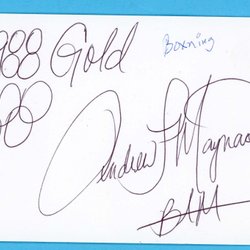 988 Gold
Boxning
Andrew Maynar
BAM